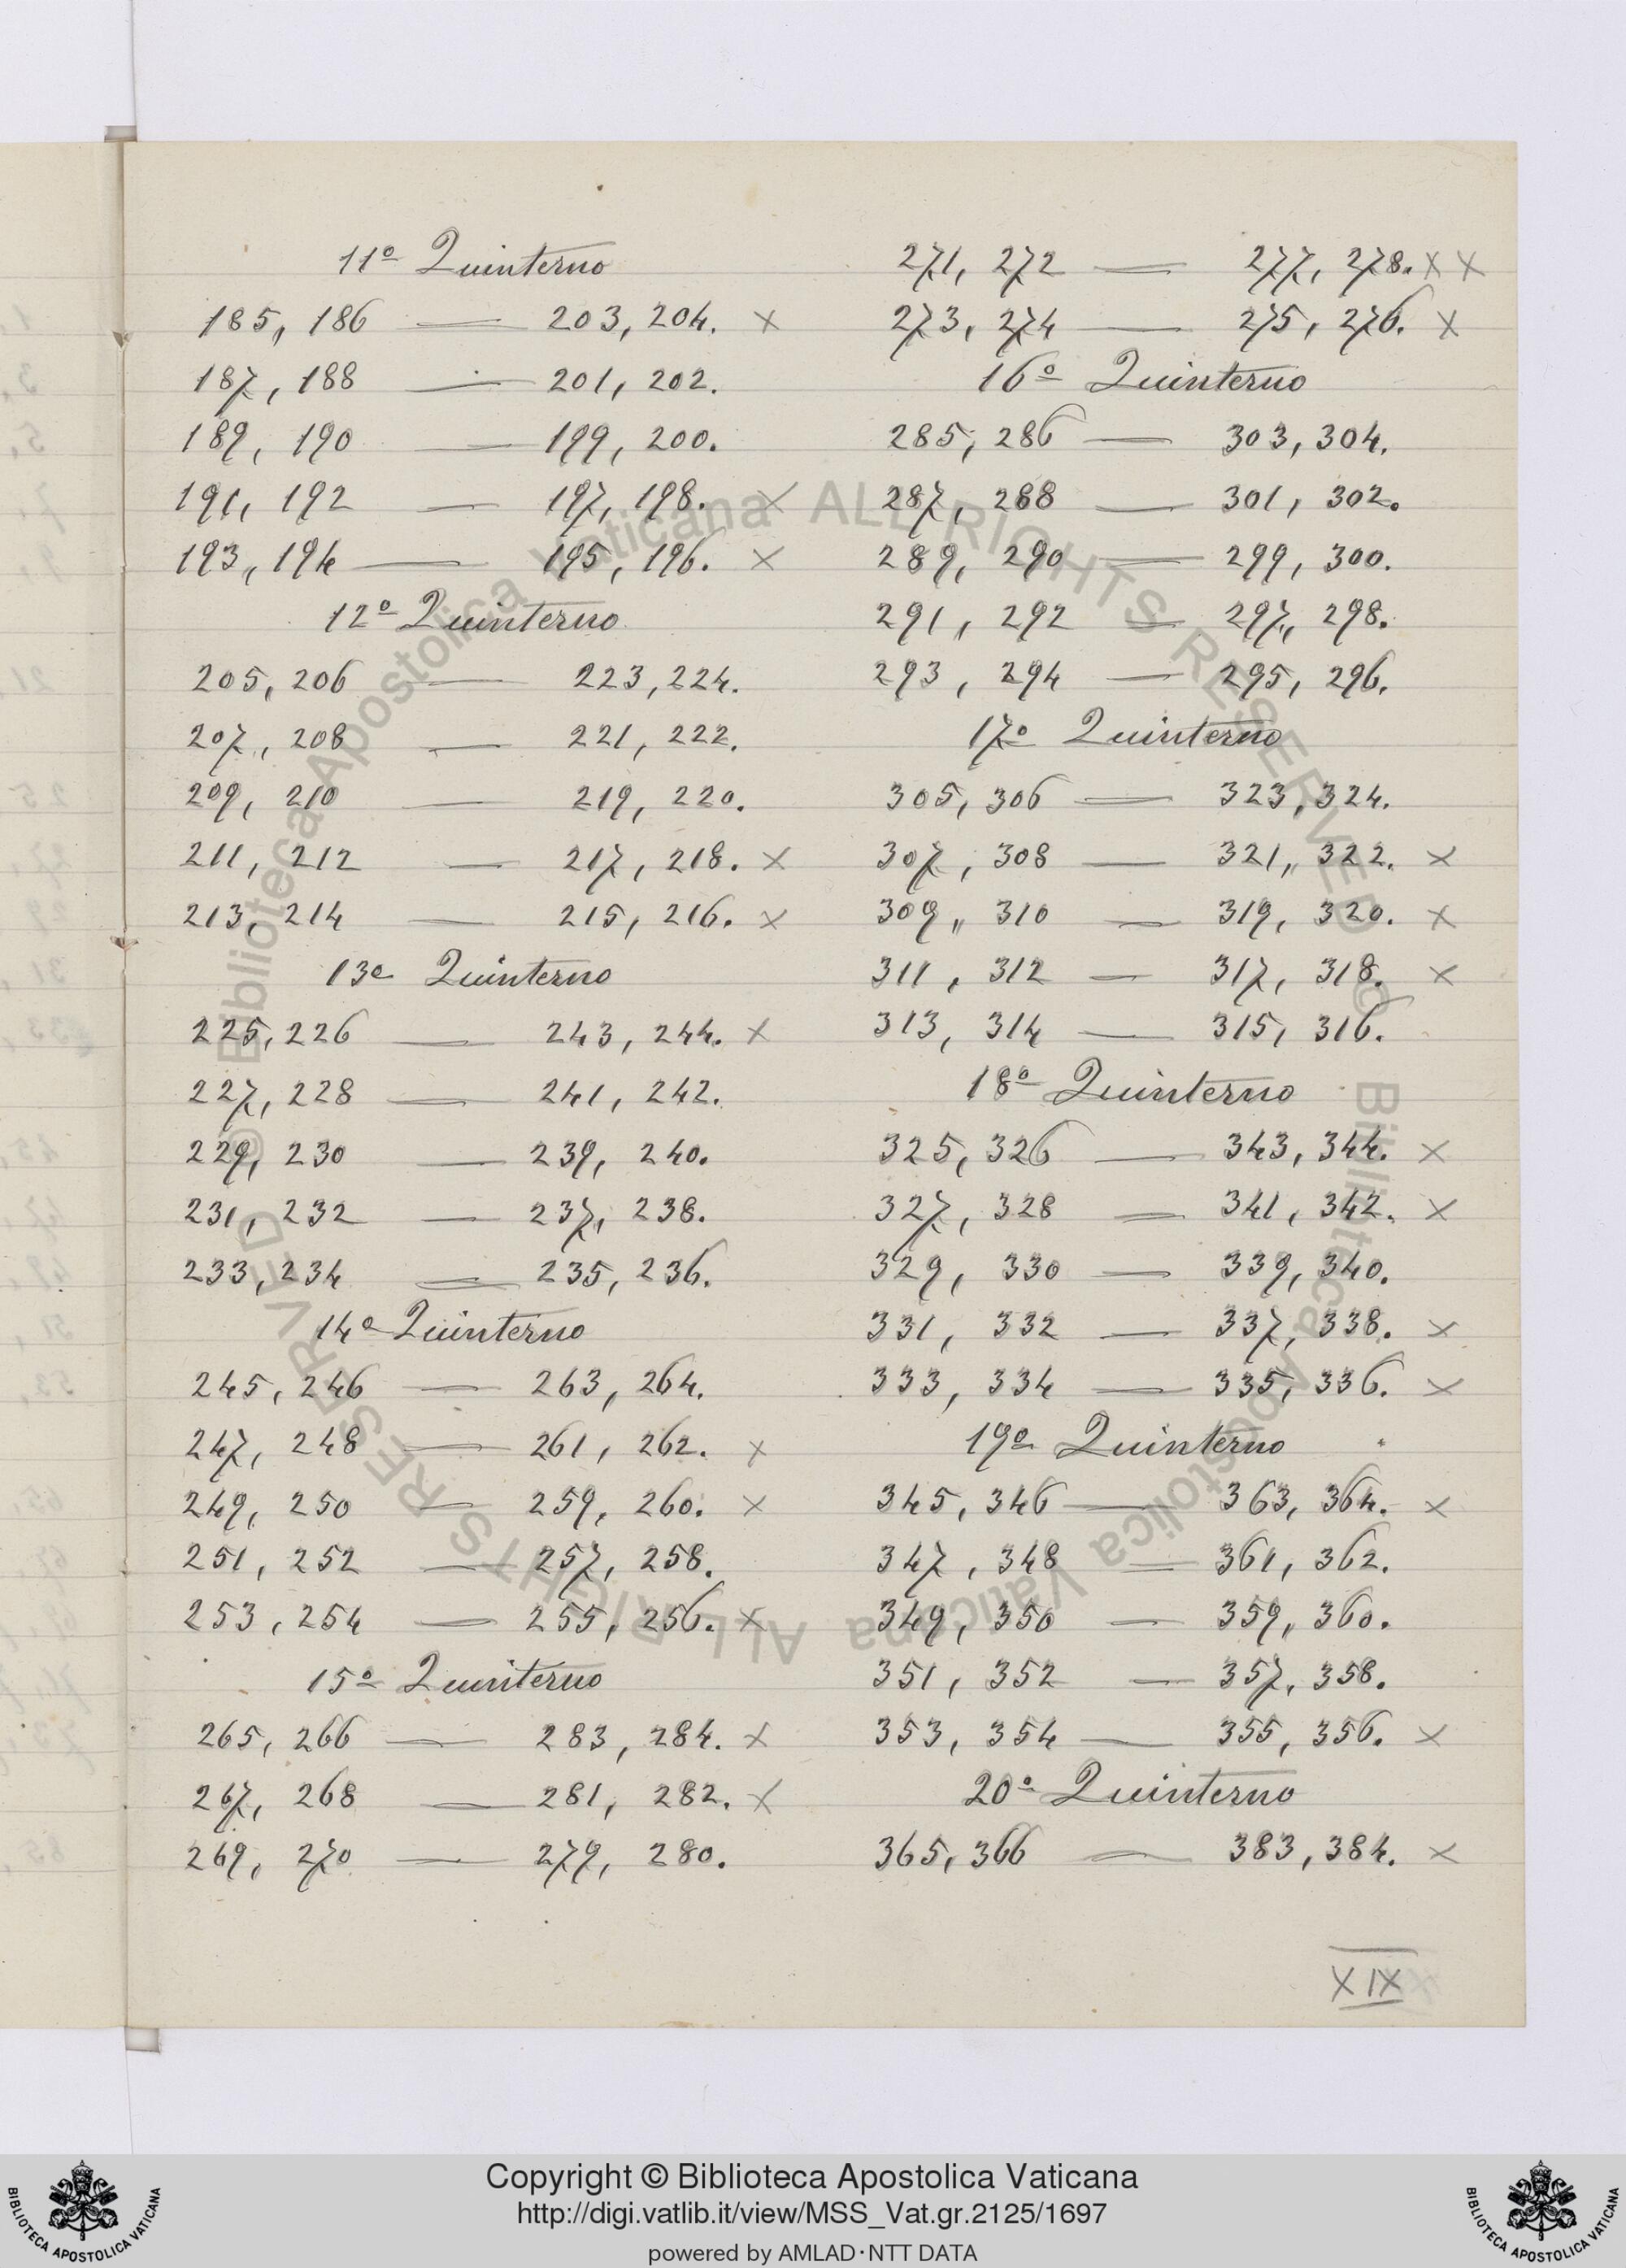 11º Quinterno
185, 186 — 203, 204. ×
187, 188 — 201, 202.
189, 190 — 199, 200.
191, 192 — 197, 198. ×
193, 194 — 195, 196. ×
12º Quinterno
205, 206 — 223, 224.
207, 208 — 221, 222.
209, 210 — 219, 220.
211, 212 — 217, 218. ×
213, 214 — 215, 216. ×
13º Quinterno
225, 226 — 243, 244. ×
227, 228 — 241, 242.
229, 230 — 239, 240.
231, 232 — 237, 238.
233, 234 — 235, 236.
14º Quinterno
245, 246 — 263, 264.
247, 248 — 261, 262. ×
249, 250 — 259, 260. ×
251, 252 — 257, 258.
253, 254 — 255, 256. ×
15º Quinterno
265, 266 — 283, 284. ×
267, 268 — 281, 282. ×
269, 270 — 279, 280.
271, 272 — 277, 278. × ×
273, 274 — 275, 276. ×
16º Quinterno
285, 286 — 303, 304.
287, 288 — 301, 302.
289, 290 — 299, 300.
291, 292 — 297, 298.
293, 294 — 295, 296.
17º Quinterno
305, 306 — 323, 324.
307, 308 — 321, 322. ×
309, 310 — 319, 320. ×
311, 312 — 317, 318. ×
313, 314 — 315, 316.
18º Quinterno
325, 326 — 343, 344. ×
327, 328 — 341, 342. ×
329, 330 — 339, 340.
331, 332 — 337, 338. ×
333, 334 — 335, 336. ×
19º Quinterno
345, 346 — 363, 364. ×
347, 348 — 361, 362.
349, 350 — 359, 360.
351, 352 — 357, 358.
353, 354 — 355, 356. ×
20º Quinterno
365, 366 — 383, 384. ×
XIX
© Biblioteca Apostolica Vaticana ALL RIGHTS RESERVED
© Biblioteca Apostolica Vaticana ALL RIGHTS RESERVED
Copyright © Biblioteca Apostolica Vaticana
http://digi.vatlib.it/view/MSS_Vat.gr.2125/1697
powered by AMLAD·NTT DATA
BIBLIOTECA APOSTOLICA VATICANA
BIBLIOTECA APOSTOLICA VATICANA